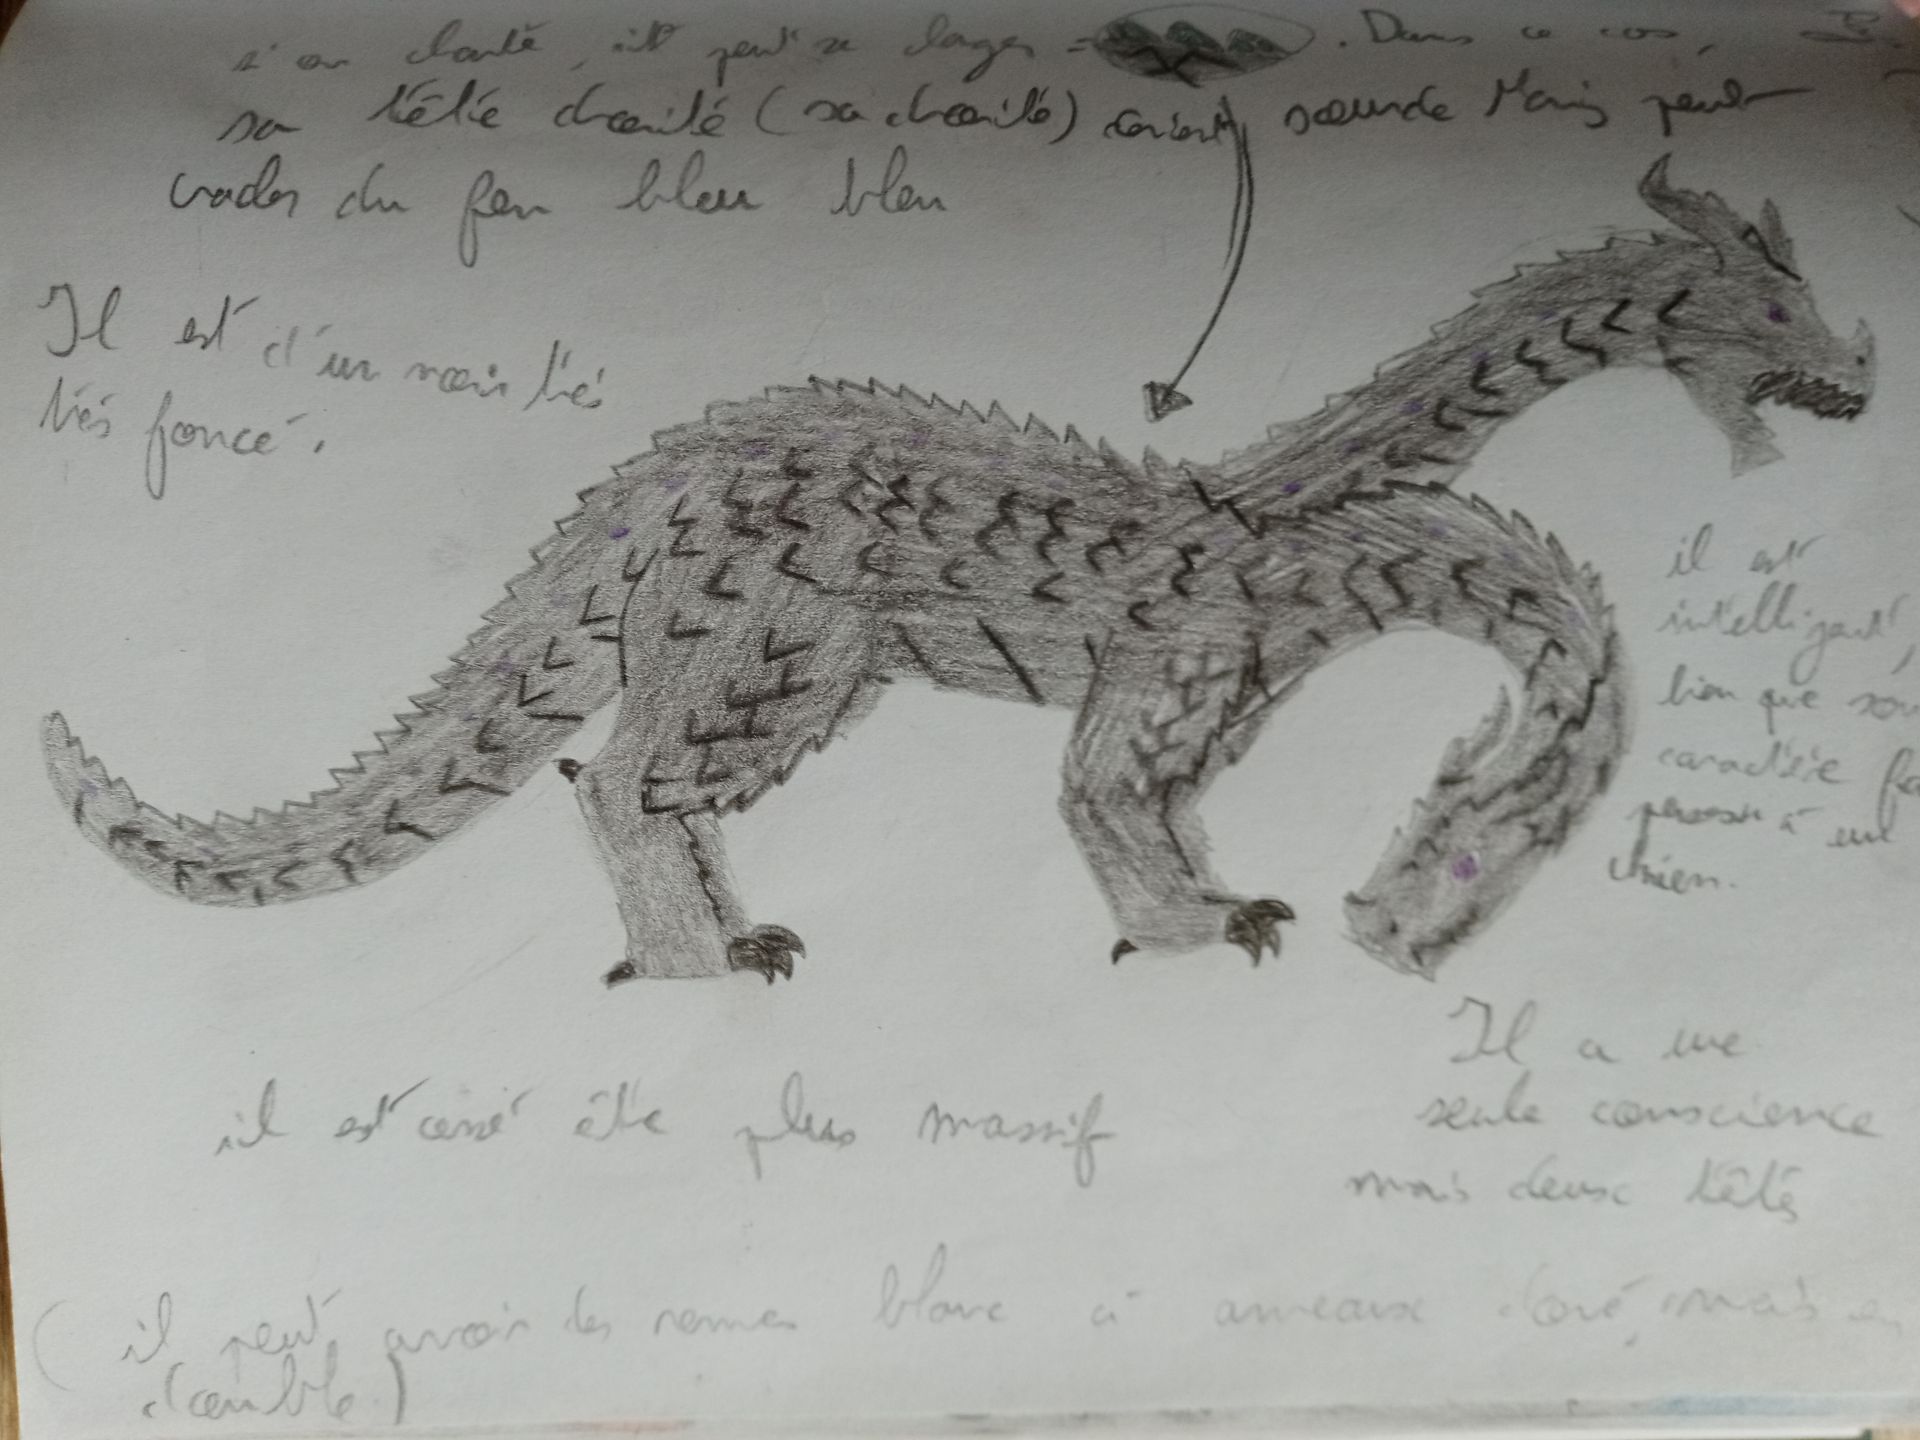 peut se
. Dans ce cas,
sa tête droite (sa droite) devient sourde Mais peut
cracher du feu bleu bleu
Il est d'un noir très
très foncé.
il est
intelligent,
bien que son
caractère
penser à un
chien.
Il a une
seule conscience
mais deux têtes
il est censé être plus massif
(il peut avoir des rennes blanc à anneaux doré, mais en
double)